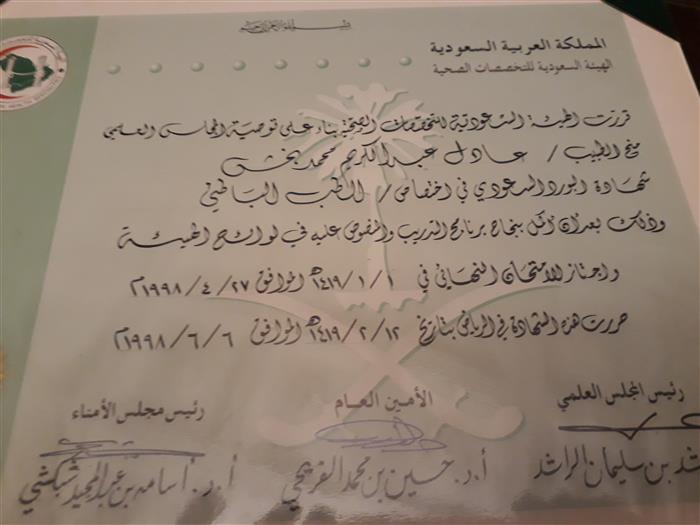 بسم الله الرحمن الرحيم
المملكة العربية السعودية
الهيئة السعودية للتخصصات الصحية
قررت الهيئة السعودية للتخصصات الصحية بناء على توصية المجلس العلمي
منح الطبيب / عادل عبدالكريم محمد بخش
شهادة البورد السعودي في اختصاص / الطب الباطني
وذلك بعد أن أكمل بنجاح برنامج التدريب والمنصوص عليه في لوائح الهيئة
واجتاز الامتحان النهائي في ١ / ١ / ١٤١٩هـ الموافق ٢٧ / ٤ / ١٩٩٨م
حررت هذه الشهادة في الرياض بتاريخ ١٢ / ٢ / ١٤١٩هـ الموافق ٦ / ٦ / ١٩٩٨م
رئيس المجلس العلمي
الأمين العام
رئيس مجلس الأمناء
بن سليمان الراشد
أ.د. حسين بن محمد الفريحي
أ.د. أسامة بن عبدالمجيد شبكشي